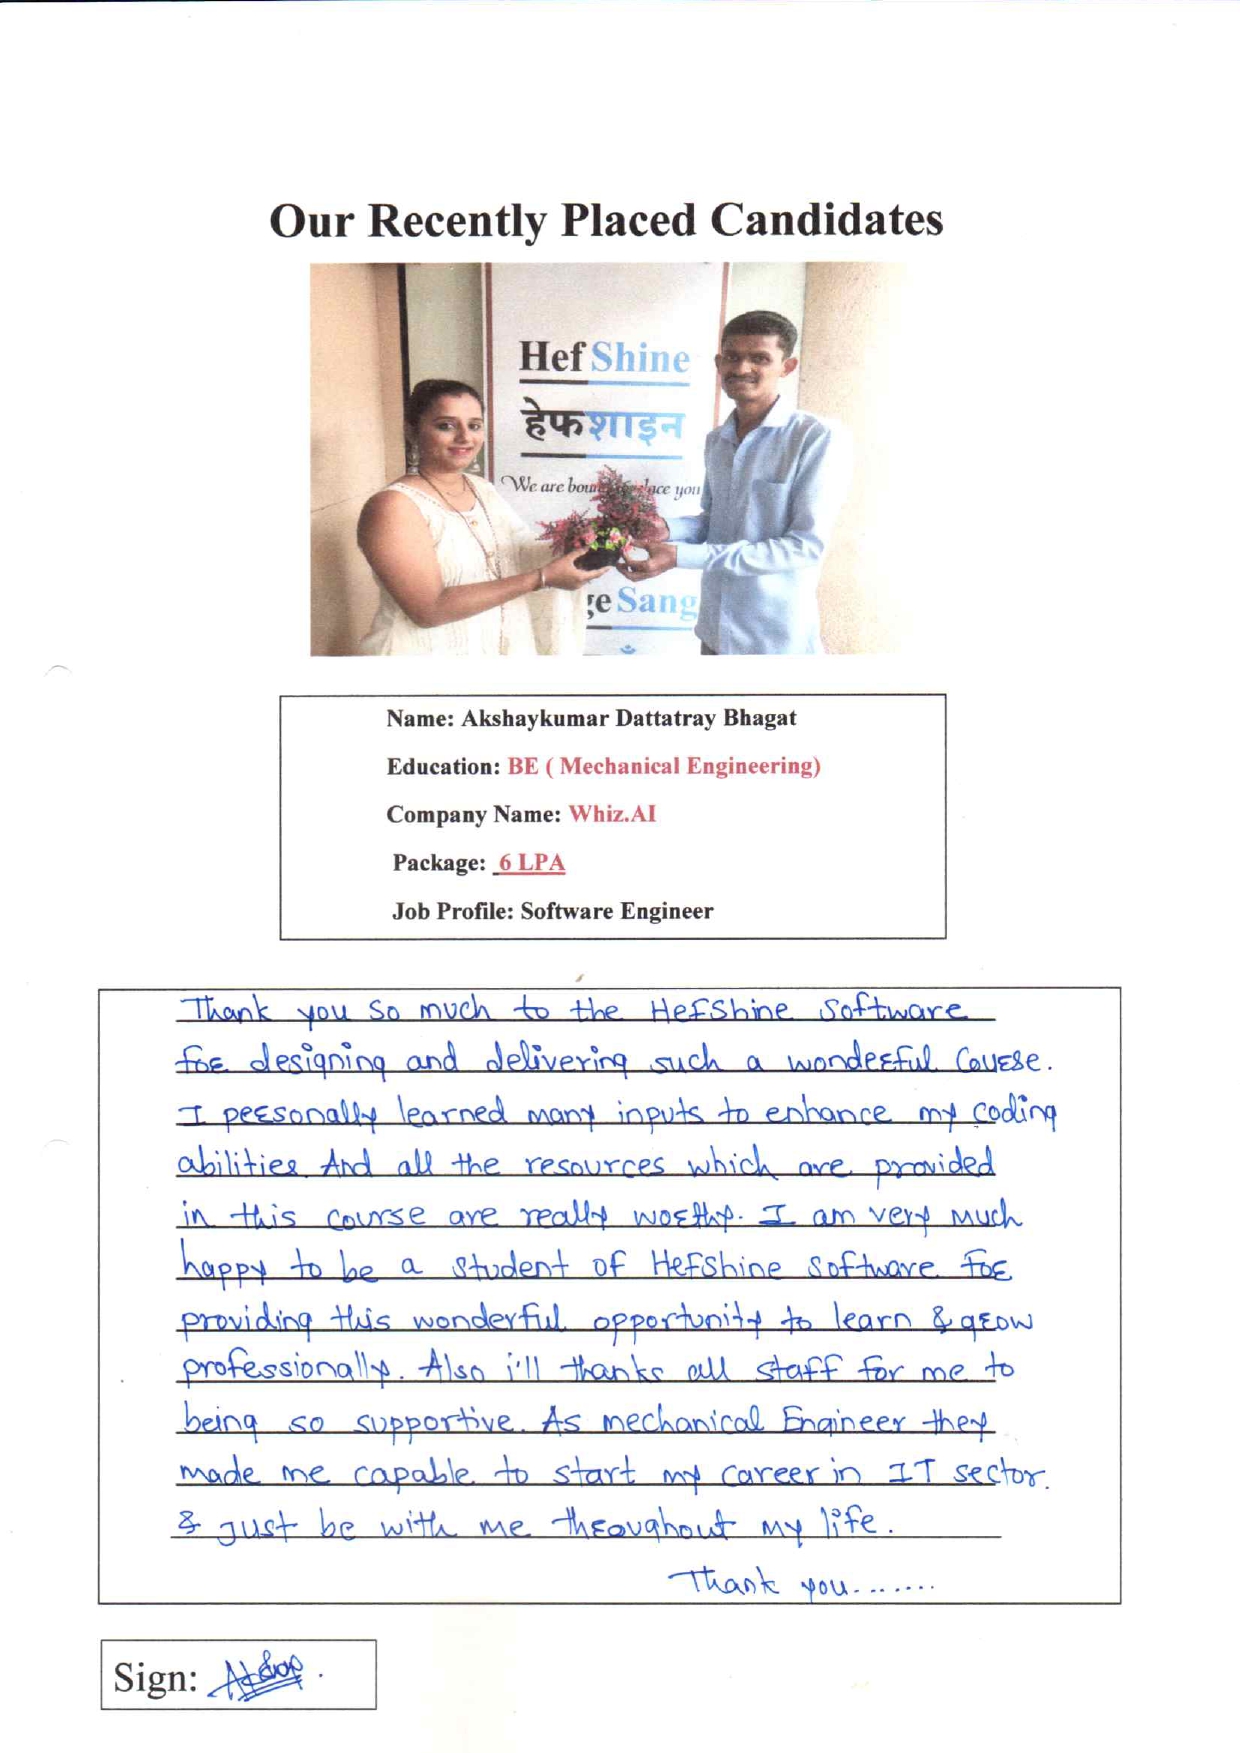 Our Recently Placed Candidates
Hef Shine
हेफशाइन
We are bou ace you
ge Sang
Name: Akshaykumar Dattatray Bhagat
Education: BE ( Mechanical Engineering)
Company Name: Whiz.AI
Package: 6 LPA
Job Profile: Software Engineer
Thank you so much to the HefShine Software
for designing and delivering such a wonderful Course.
I personally learned many inputs to enhance my coding
abilities And all the resources which are provided
in this course are really worthy. I am very much
happy to be a student of HefShine Software For
providing this wonderful opportunity to learn & grow
professionally. Also i'll thanks all staff for me to
being so supportive. As mechanical Engineer they
made me capable to start my career in IT sector.
& just be with me throughout my life.
Thank you........
Sign: